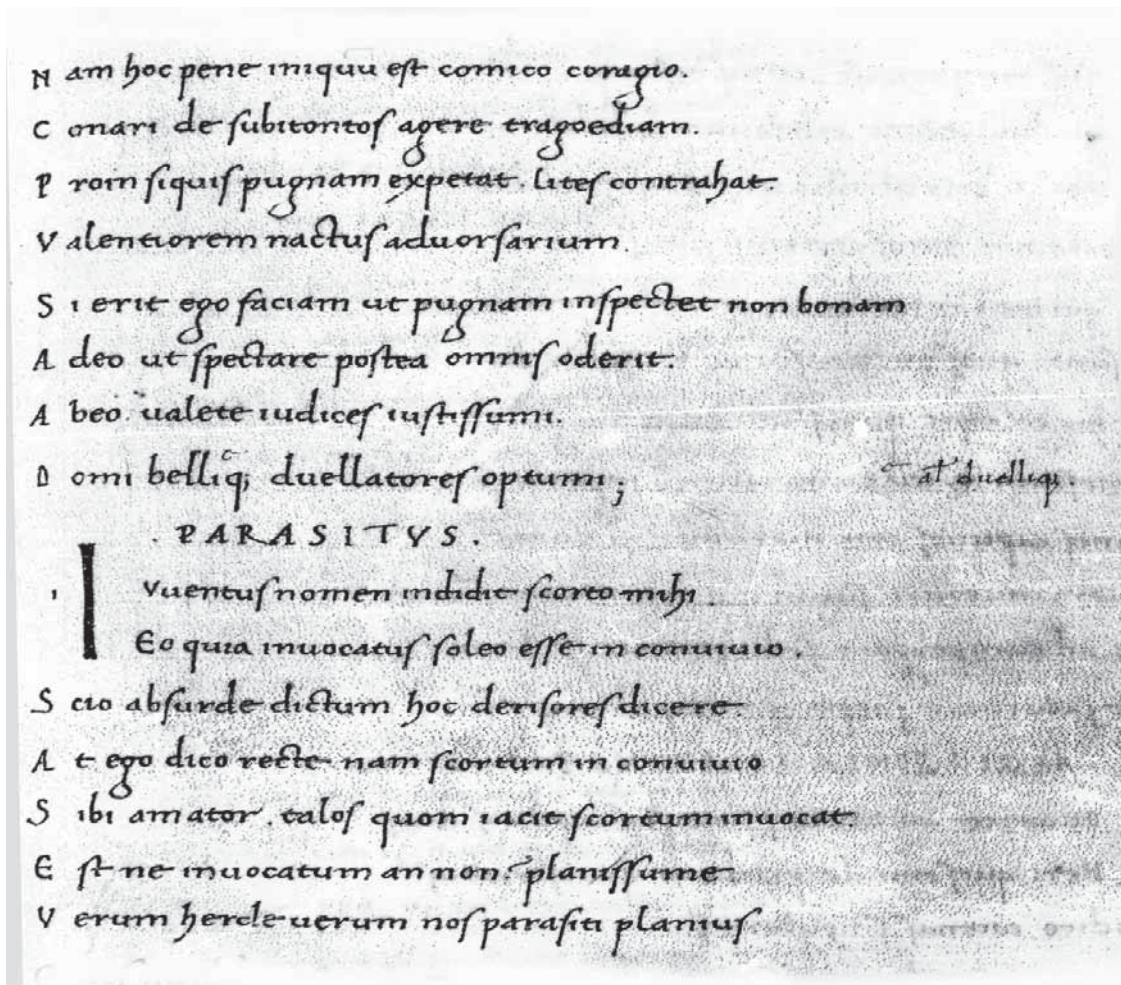 Nam hoc pene iniquu est comico coragio.
Conari de subitontos agere tragoediam.
Proin siquis pugnam expetat. lites contrahat.
Valentiorem nactus aduorsarium.
Si erit ego faciam ut pugnam inspectet non bonam
Adeo ut spectare postea omnis oderit.
Abeo. ualete iudices iustissumi.
Domi belliq; duellatores optumi; al' duelliq;
.PARASITVS.
Iuuentus nomen indidit scorto mihi.
Eo quia inuocatus soleo esse in conuiuio.
Scio absurde dictum hoc derisores dicere.
At ego dico recte nam scortum in conuiuio
Sibi amator. talos quom iacit scortum inuocat.
Est ne inuocatum an non? planissume
Verum hercle uerum nos parasiti planius